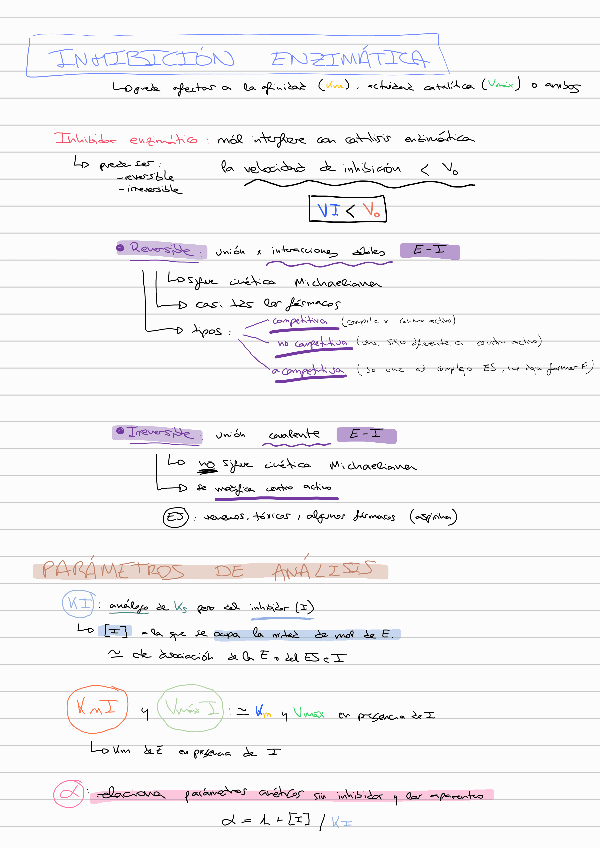 INHIBICIÓN ENZIMÁTICA
↳ puede afectar a la afinidad (Km), actividad catalítica (Vmáx) o ambas
Inhibidor enzimático: mól interfiere con catálisis enzimática
↳ puede ser:
- reversible
- irreversible
la velocidad de inhibición < V₀
VI < V₀
• Reversible: unión x interacciones débiles E-I
↳ sigue cinética Michaeliana
→ casi tzs los fármacos
→ tipos:
competitiva (compite x centro activo)
no competitiva (une sitio diferente a centro activo)
acompetitiva (so une al complejo ES,
• Irreversible: unión covalente E-I
↳ no sigue cinética Michaeliana
→ se modifica centro activo
EJ: venenos, tóxicos, algunos fármacos (aspirina)
PARÁMETROS DE ANÁLISIS
KI: análogo de Ks pero del inhibidor (I)
↳ [I] a la que se ocupa la mitad de mol de E.
≃ cte disociación de la E o del ES e I
KmI y VmáxI: ≃ Km y Vmáx en presencia de I
↳ Km de E en presencia de I
α: relaciona parámetros cinéticos sin inhibidor y los aparentes
α = 1 + [I] / KI